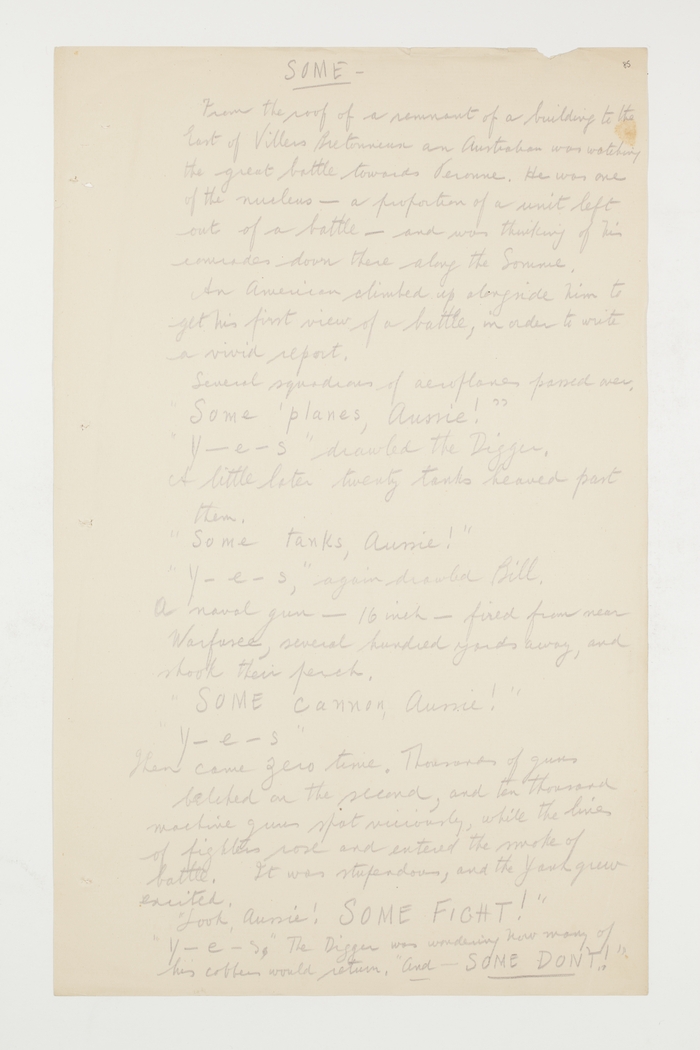 SOME -
From the roof of a remnant of a building to the
East of Villers Bretonneau an Australian was watching
the great battle towards Peronne. He was one
of the nucleus — a proportion of a unit left
out of a battle — and was thinking of his
comrades down there along the Somme.
An American climbed up alongside him to
get his first view of a battle, in order to write
a vivid report.
Several squadrons of aeroplanes passed over.
"Some 'planes, Aussie!"
"Y-e-s" drawled the Digger.
A little later twenty tanks heaved past
them.
"Some tanks, Aussie!"
"Y-e-s," again drawled Bill.
A naval gun — 16 inch — fired from near
Warfusee, several hundred yards away, and
shook their perch.
"SOME cannon, Aussie!"
"Y-e-s"
Then came zero time. Thousands of guns
belched on the second, and ten thousand
machine guns spat viciously, while the lines
of fighters rose and entered the smoke of
battle. It was stupendous, and the Yank grew
excited.
"Look, Aussie! SOME FIGHT!"
"Y-e-s," The Digger was wondering how many of
his cobbers would return. "And — SOME DONT!"